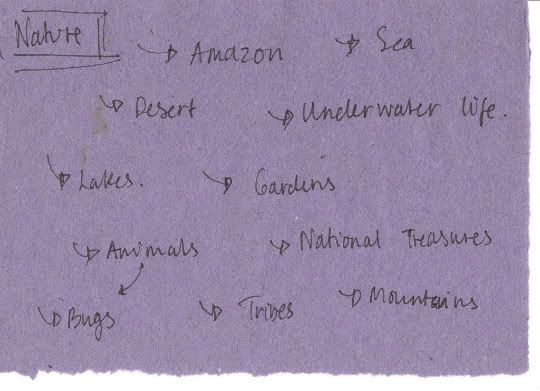 Nature
Amazon
Sea
Desert
Underwater life.
Lakes.
Gardens
Animals
National Treasures
Bugs
Tribes
Mountains